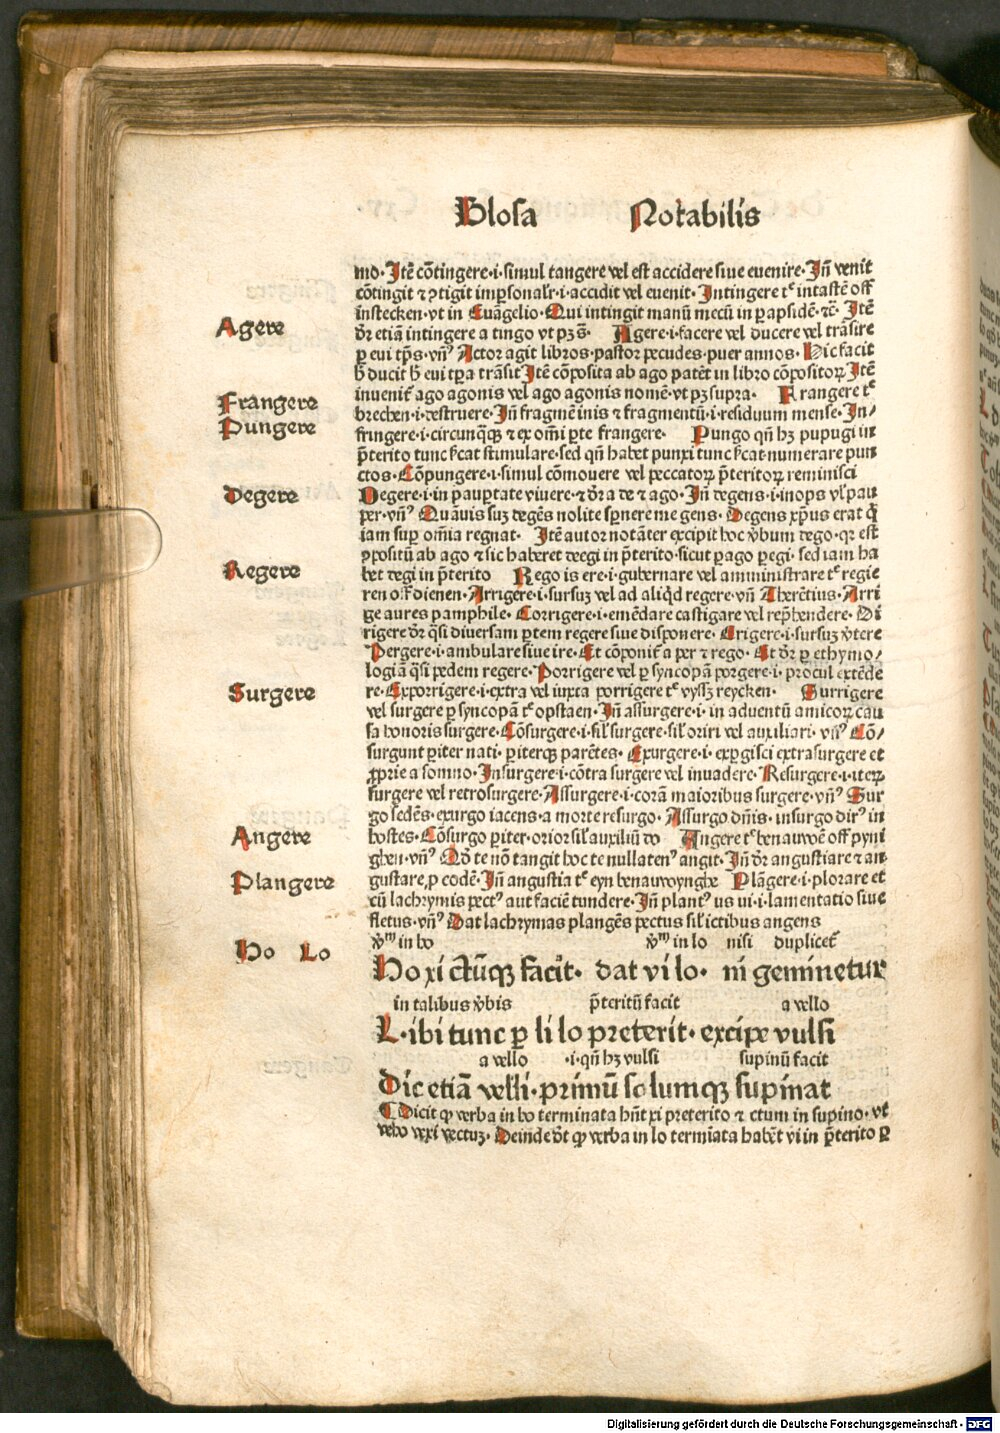 Glosa Notabilis
mo· Itē cōtingere·i·simul tangere vel est accidere siue euenire· Iñ venit
cōtingit ⁊ ꝯtigit imꝑsonalr̄·i·accidit vel euenit· Intingere tᵉ intastē off
instecken·vt in Euāgelio·Qui intingit manū mecū in ꝑapsidē·⁊c̄· Itē
Agere
dr̄ etiā intingere a tingo vt pꝫ ·s̄· Agere·i·facere vel ducere vel trāsire
ꝑ eui tꝑs·vn̄ꝰ Actor agit libros·pastor pecudes·puer annos· Hic facit
h̄ ducit h̄ eui tꝑa trāsit Itē cōposita ab ago patēt in libro cōpositoꝝ Itē
inuenit᷑ ago agonis vel ago agonis nomē·vt pꝫ supra· Frangere tᵉ
Frangere
brechen·i·destruere·Iñ fragmē inis ⁊ fragmentū·i·residuum mense·In/
Pungere
fringere·i·circunq̄ꝗ ⁊ ex om̄i ꝑte frangere· Pungo qn̄ hꝫ pupugi in
p̄terito tunc s̄cat stimulare·sed qn̄ habet punxi tunc s̄cat·numerare pun
ctos·Cōpungere·i·simul cōmouere vel peccatoꝝ p̄teritoꝝ reminisci
Degere
Degere·i·in pauꝑtate viuere·⁊ dr̄ a de ⁊ ago·Iñ degens·i·inops vl̓ pau
per·vn̄ꝰ Quāuis suꝫ degēs nolite sꝑnere me gens· Degens xp̄us erat q̄
iam suꝑ om̄ia regnat· Itē autor notāter excipit hoc v̄bum dego·qꝛ est
ꝓpositū ab ago ⁊ sic haberet deegi in p̄terito·sicut ꝑago ꝑegi· sed iam ha
Regere
bet degi in p̄terito Rego is ere·i·gubernare vel amministrare tᵉ regie
ren off dienen·Arrigere·i·sursuꝫ vel ad aliqd regere·vn̄ Therētius·Arri
ge aures pamphile· Corrigere·i·emēdare castigare vel rep̄hendere· Di
rigere dr̄ q̄si diuersam ꝑtem regere siue disponere· Erigere·i·sursuꝫ v̄tere
Pergere·i·ambulare siue ire·Et cōponit᷑ a per ⁊ rego· Et dr̄ ꝑ ethymo/
logiā q̄si pedem regere·Porrigere vel ꝑ syncopā porgere·i·procul extēde
Surgere
re·Exporrigere·i·extra vel iuxta porrigere tᵉ vyssꝫ reycken· Surrigere
vel surgere ꝑ syncopā tᵉ opstaen·Iñ assurgere·i·in aduentū amicoꝝ cau
sa honoris surgere·Cōsurgere·i·sil̓ surgere·sil̓ oriri vel auxiliari· vn̄ꝰ Cō/
surgunt ꝑiter nati· ꝑiterqꝫ parētes· Exurgere·i·exꝑgisci extra surgere et
ꝓprie a somno·Insurgere·i·cōtra surgere vel inuadere·Resurgere·i·iteꝝ
surgere vel retrosurgere·Assurgere·i·corā maioribus surgere·vn̄ꝰ Sur
go sedēs·exurgo iacens·a morte resurgo· Assurgo dn̄is·insurgo dirꝰ in
Angere
hostes·Cōsurgo ꝑiter·orior sil̓ auxiliū do Angere tᵉ benauwē off pyni
ghen·vn̄ꝰ Qd̓ te nō tangit hoc te nullatenꝰ angit·Iñ dr̄ angustiare ⁊ an
Plangere
gustare, ꝓ eodē·Iñ angustia tᵉ eyn benauwynghe Plāgere·i·plorare et
cū lachrymis pectꝰ aut faciē tundere·Iñ planctꝰ us ui·i·lamentatio siue
fletus·vn̄ꝰ Dat lachrymas plangēs pectus sil̓ ictibus angens
v̄ᵐ in ho v̄ᵐ in lo nisi duplicet᷑
Ho Lo
Ho xi ctūqꝫ facit· dat vi lo· ni geminetur
in talibus v̄bis p̄teritū facit a vello
L·ibi tunc ꝑ li lo preterit·excipe vulsi
a vello ·i·qn̄ hꝫ vulsi supinū facit
Dic etiā velli·primū solumqꝫ supinat
Dicit ꝙ verba in ho terminata hn̄t xi preterito ⁊ ctum in supino· vt
veho vexi vectuꝫ· Deinde dr̄ ꝙ verba in lo termīata habēt vi in p̄terito
Digitalisierung gefördert durch die Deutsche Forschungsgemeinschaft - DFG